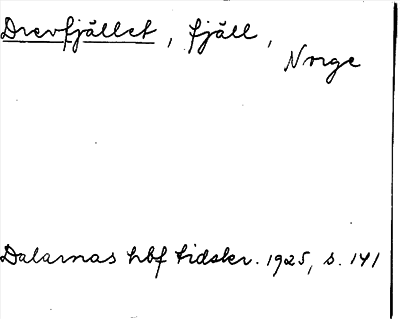 Drevfjället, fjäll,
Norge
Dalarnas hbf tidskr. 1925, s. 141